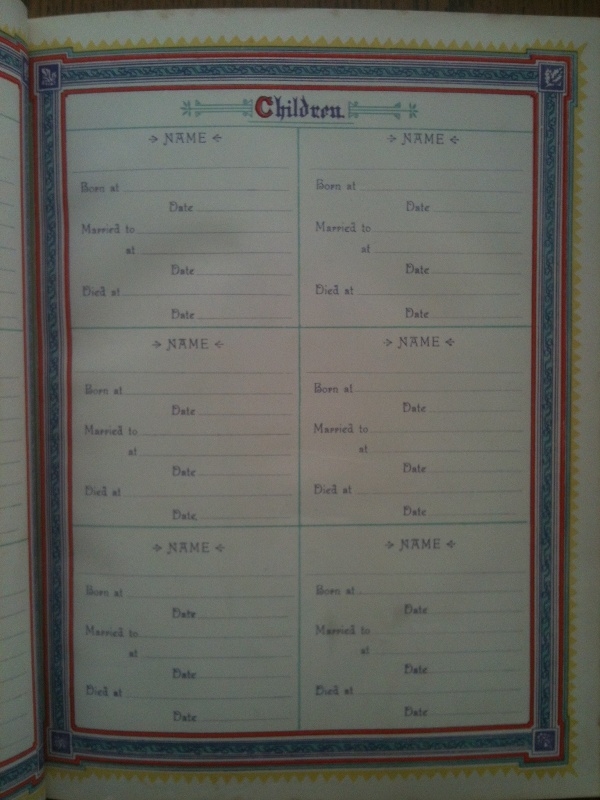 Children.
NAME
Born at
Date
Married to
at
Date
Died at
Date
NAME
Born at
Date
Married to
at
Date
Died at
Date
NAME
Born at
Date
Married to
at
Date
Died at
Date
NAME
Born at
Date
Married to
at
Date
Died at
Date
NAME
Born at
Date
Married to
at
Date
Died at
Date
NAME
Born at
Date
Married to
at
Date
Died at
Date